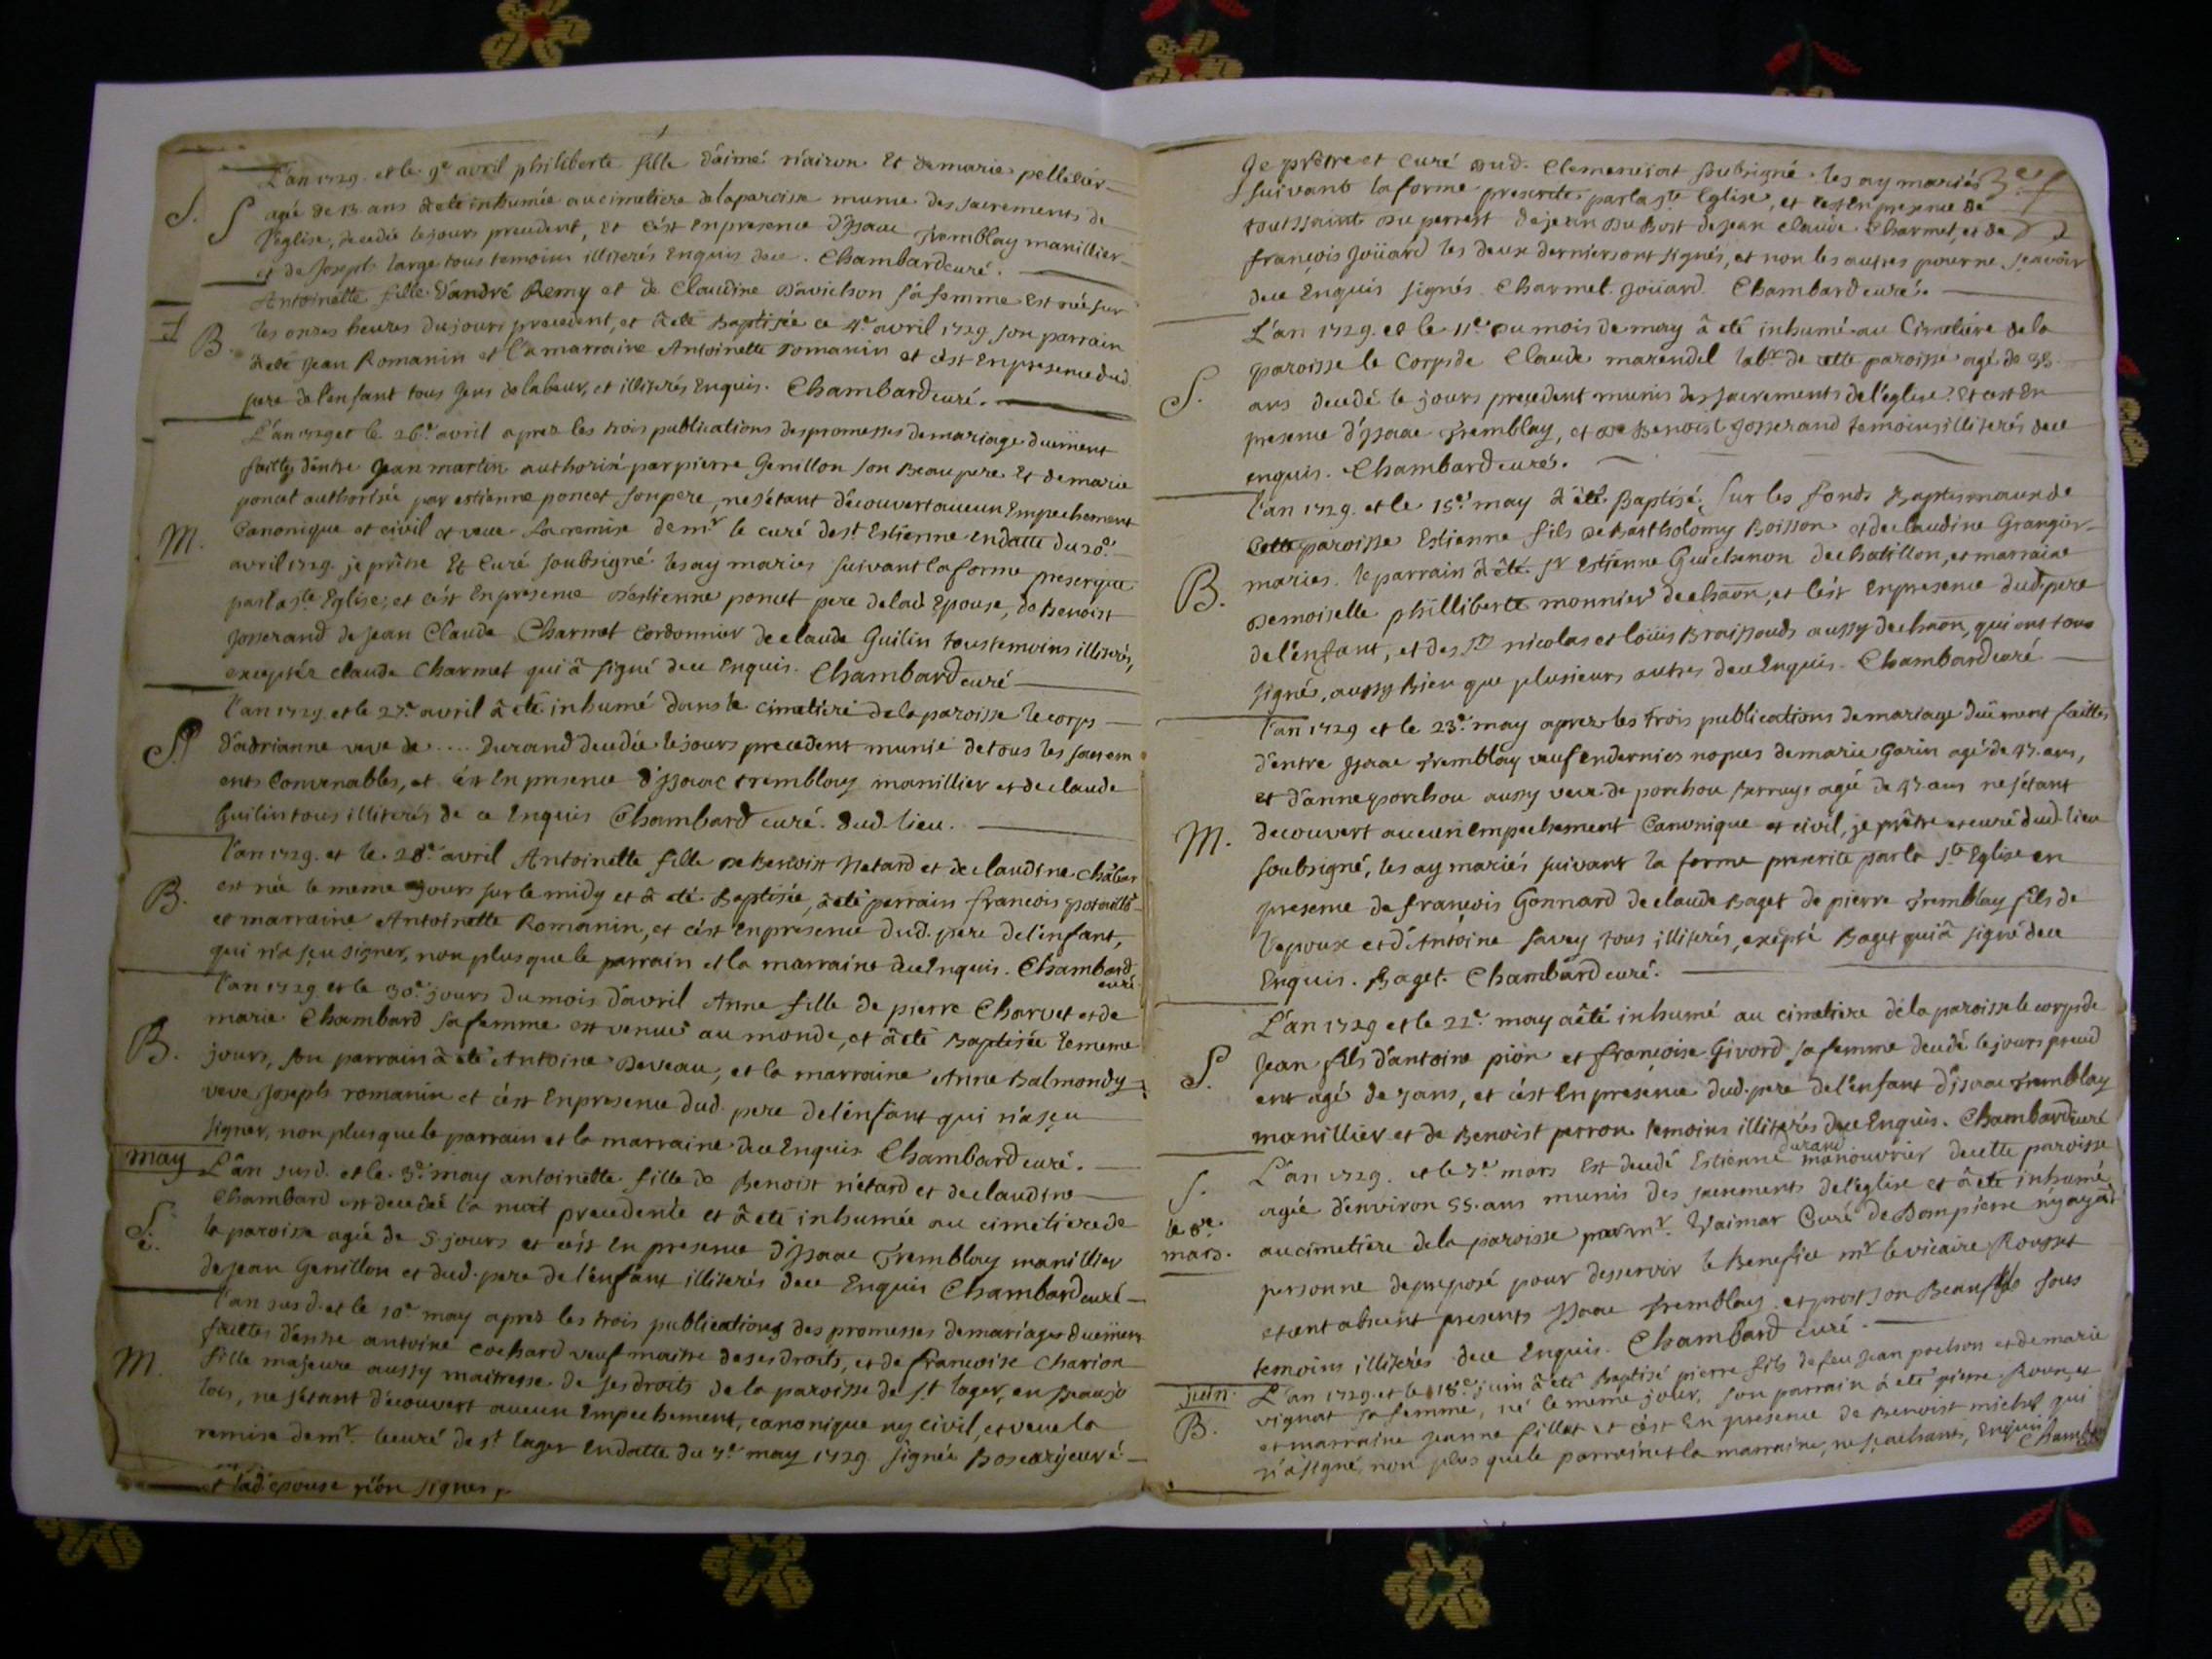 L'an 1729. et le 9e avril philiberte fille d'aimé n'airon Et de marie pelletier
S. agée de 13 ans a eté inhumée au cimetiere de la paroisse munie des sacrements de
l'eglise, decedée le jours precedent, et c'est en presence d'Isaac Tremblay manillier
et de Joseph large tous temoins illiterés Enquis de ce. Chambard curé.
Antoinette fille d'andré Remy et de Claudine Davielson sa femme Est née sur
B. les onzes heures du jours precedent, et a eté Baptisée ce 4e avril 1729 son parrain
a eté Jean Romanin et la marraine Antoinette romanin et c'est En presence dud.
pere de l'enfant tous gens de labeur, et illiterés Enquis. Chambard curé.
L'an 1729 et le 26e avril aprez les trois publications des promesses de mariage duëment
faittes d'entre Jean martin authorisé par pierre Genillon son Beau pere Et de marie
poncet authorisée par estienne poncet son pere, ne s'étant découvert aucun Empechement
M. Canonique et civil et veue la remise de mr le curé de st Estienne en datte du 20e
avril 1729. je prêtre Et Curé soubsigné les ay mariés suivant la forme
par la ste Eglise, et c'est En presence d'estienne poncet pere de lad Epouse, de Benoist
Josserand de Jean Claude Charmet Cordonnier de claude Guilin tous temoins illiterés,
exceptéz claude Charmet qui â signé de ce Enquis. Chambard curé
l'an 1729 et le 27e avril â eté inhumé dans le cimetiere de la paroisse le corps
S. d'adrianne veve de .... Durand decedée le jours precedent munie de tous les sacrem
ents Convenables, et c'est En presence d'Isaac tremblay manillier et de claude
Guilin tous illiterés de ce Enquis Chambard curé. dud. lieu.
l'an 1729. et le 28e avril Antoinette fille de Benoist Netard et de claudine
B. est née le meme jours sur le midy et â eté Baptisée, a eté parrain francois
et marraine Antoinette Romanin, et c'est en presence dud. pere de l'enfant,
qui n'a sçu signer, non plus que le parrain et la marraine de ce Enquis. Chambard
curé.
l'an 1729 et le 30e jours du mois d'avril Anne fille de pierre Charvet et de
marie Chambard sa femme est venue au monde, et â eté Baptisée le meme
B. jours, son parrain â eté Antoine Deveau, et la marraine Anne Balmondy
veve Joseph romanin et c'est En presence dud. pere de l'enfant qui n'a sçu
signer, non plus que le parrain et la marraine de ce Enquis Chambard curé.
may L'an susd. et le 3e may antoinette fille de Benoist nétard et de claudine
Chambard est decedée la nuit precedente et â eté inhumée au cimetiere de
S. la paroisse agée de 5 jours et c'est En presence d'Isaac Tremblay manillier
de Jean Genillon et dud. pere de l'enfant illiterés de ce Enquis Chambard curé
l'an susd. et le 10e may aprez les trois publications des promesses de mariages duëment
faittes d'entre antoine Cochard veuf maitre de ses droits, et de francoise Charion
M. fille majeure aussy maitresse de ses droits de la paroisse de st lager, en Beaujo
lois, ne s'étant découvert aucun Empechement, canonique ny civil, et veue la
remise de mr. le curé de st lager En datte du 7e may 1729 signée curé
et lad. epouse n'on signer
Je prêtre et Curé dud. Clemencïat Soubsigné les ay mariés
suivant la forme prescrite par la ste Eglise, et c'est En presence de
toussaint du perrest de jean Du Bost de Jean Claude Charmet, et de
françois Joüard les deux derniers ont signés, et non les autres pour ne sçavoir
de ce Enquis signés Charmet. Joüard. Chambard curé.
L'an 1729. et le 11e du mois de may â eté inhumé au Cimetiére de la
paroisse le Corps de Claude marendel labr. de cette paroisse agé de 35
S. ans decedé le jours precedent munis des sacrements de l'eglise. Et c'est En
presence d'Isaac Tremblay, et de Benoist Josserand temoins illiterés de ce
enquis. Chambard curé.
l'an 1729. et le 15e may â eté Baptisé, sur les fonds Baptismaux de
Cette paroisse Estienne fils de Bartholomy Boisson et de claudine Grangier
B. mariés. le parrain â eté sr Estienne Guichenon de chatillon, et marraine
Demoiselle philliberte monnier de chaõn, et c'est En presence dud. pere
de l'enfant, et des srs nicolas et loüis Braissouds aussy de chaõn, qui ont tous
signés, aussy bien que plusieurs autres de ce Enquis. Chambard curé
l'an 1729 et le 23e may aprez les trois publications de mariage duëment faittes
d'entre Isaac Tremblay veuf en dernies nopces de marie Garin agé de 47. ans,
et d'anne porchou aussy veve de porchou ferruys agée de 47 ans ne s'étant
M. decouvert aucun Empechement Canonique et civil, je prêtre et curé dud. lieu
soubsigné, les ay mariés suivant la forme prescrite par la ste Eglise en
presence de françois Gonnard de claude Baget de pierre Tremblay fils de
l'epoux et d'Antoine Savey tous illiterés, excépté Baget qui â signé de ce
Enquis. Baget. Chambard curé.
L'an 1729 et le 22e may a eté inhumé au cimetiere de la paroisse le corps de
S. Jean fils d'antoine piön et françoise Givord sa femme decedé le jours preced
ent agé de 7 ans, et c'est En presence dud. pere de l'enfant d'Isaac Tremblay
manillier et de Benoist perron temoins illiterés de ce Enquis. Chambard curé
durand
S. L'an 1729. et le 7e mars Est decedé Estienne manouvrier de cette paroisse
agée d'environ 55. ans munis des sacrements de l'eglise et â eté inhumé
le 8e mars. au cimetiére de la paroisse par mr. Vaimar Curé de Dompierre n'y ayant
personne de preposé pour desservir le Benefice mr le vicaire Rousset
etant absent presents Isaac Tremblay et prost son Beaufils tous
temoins illiterés de ce Enquis. Chambard curé.
juin. L'an 1729. et le 18e juin â eté Baptisé pierre fils de feu Jean pochon et de marie
B. vignat sa femme, né le meme jour, son parrain â eté pierre Roux, et
et marraine Jeanne fillot et c'est En presence de Benoist michel qui
n'a signé, non plus que le parrain et la marraine, ne sçachants, Enquis
Chambard